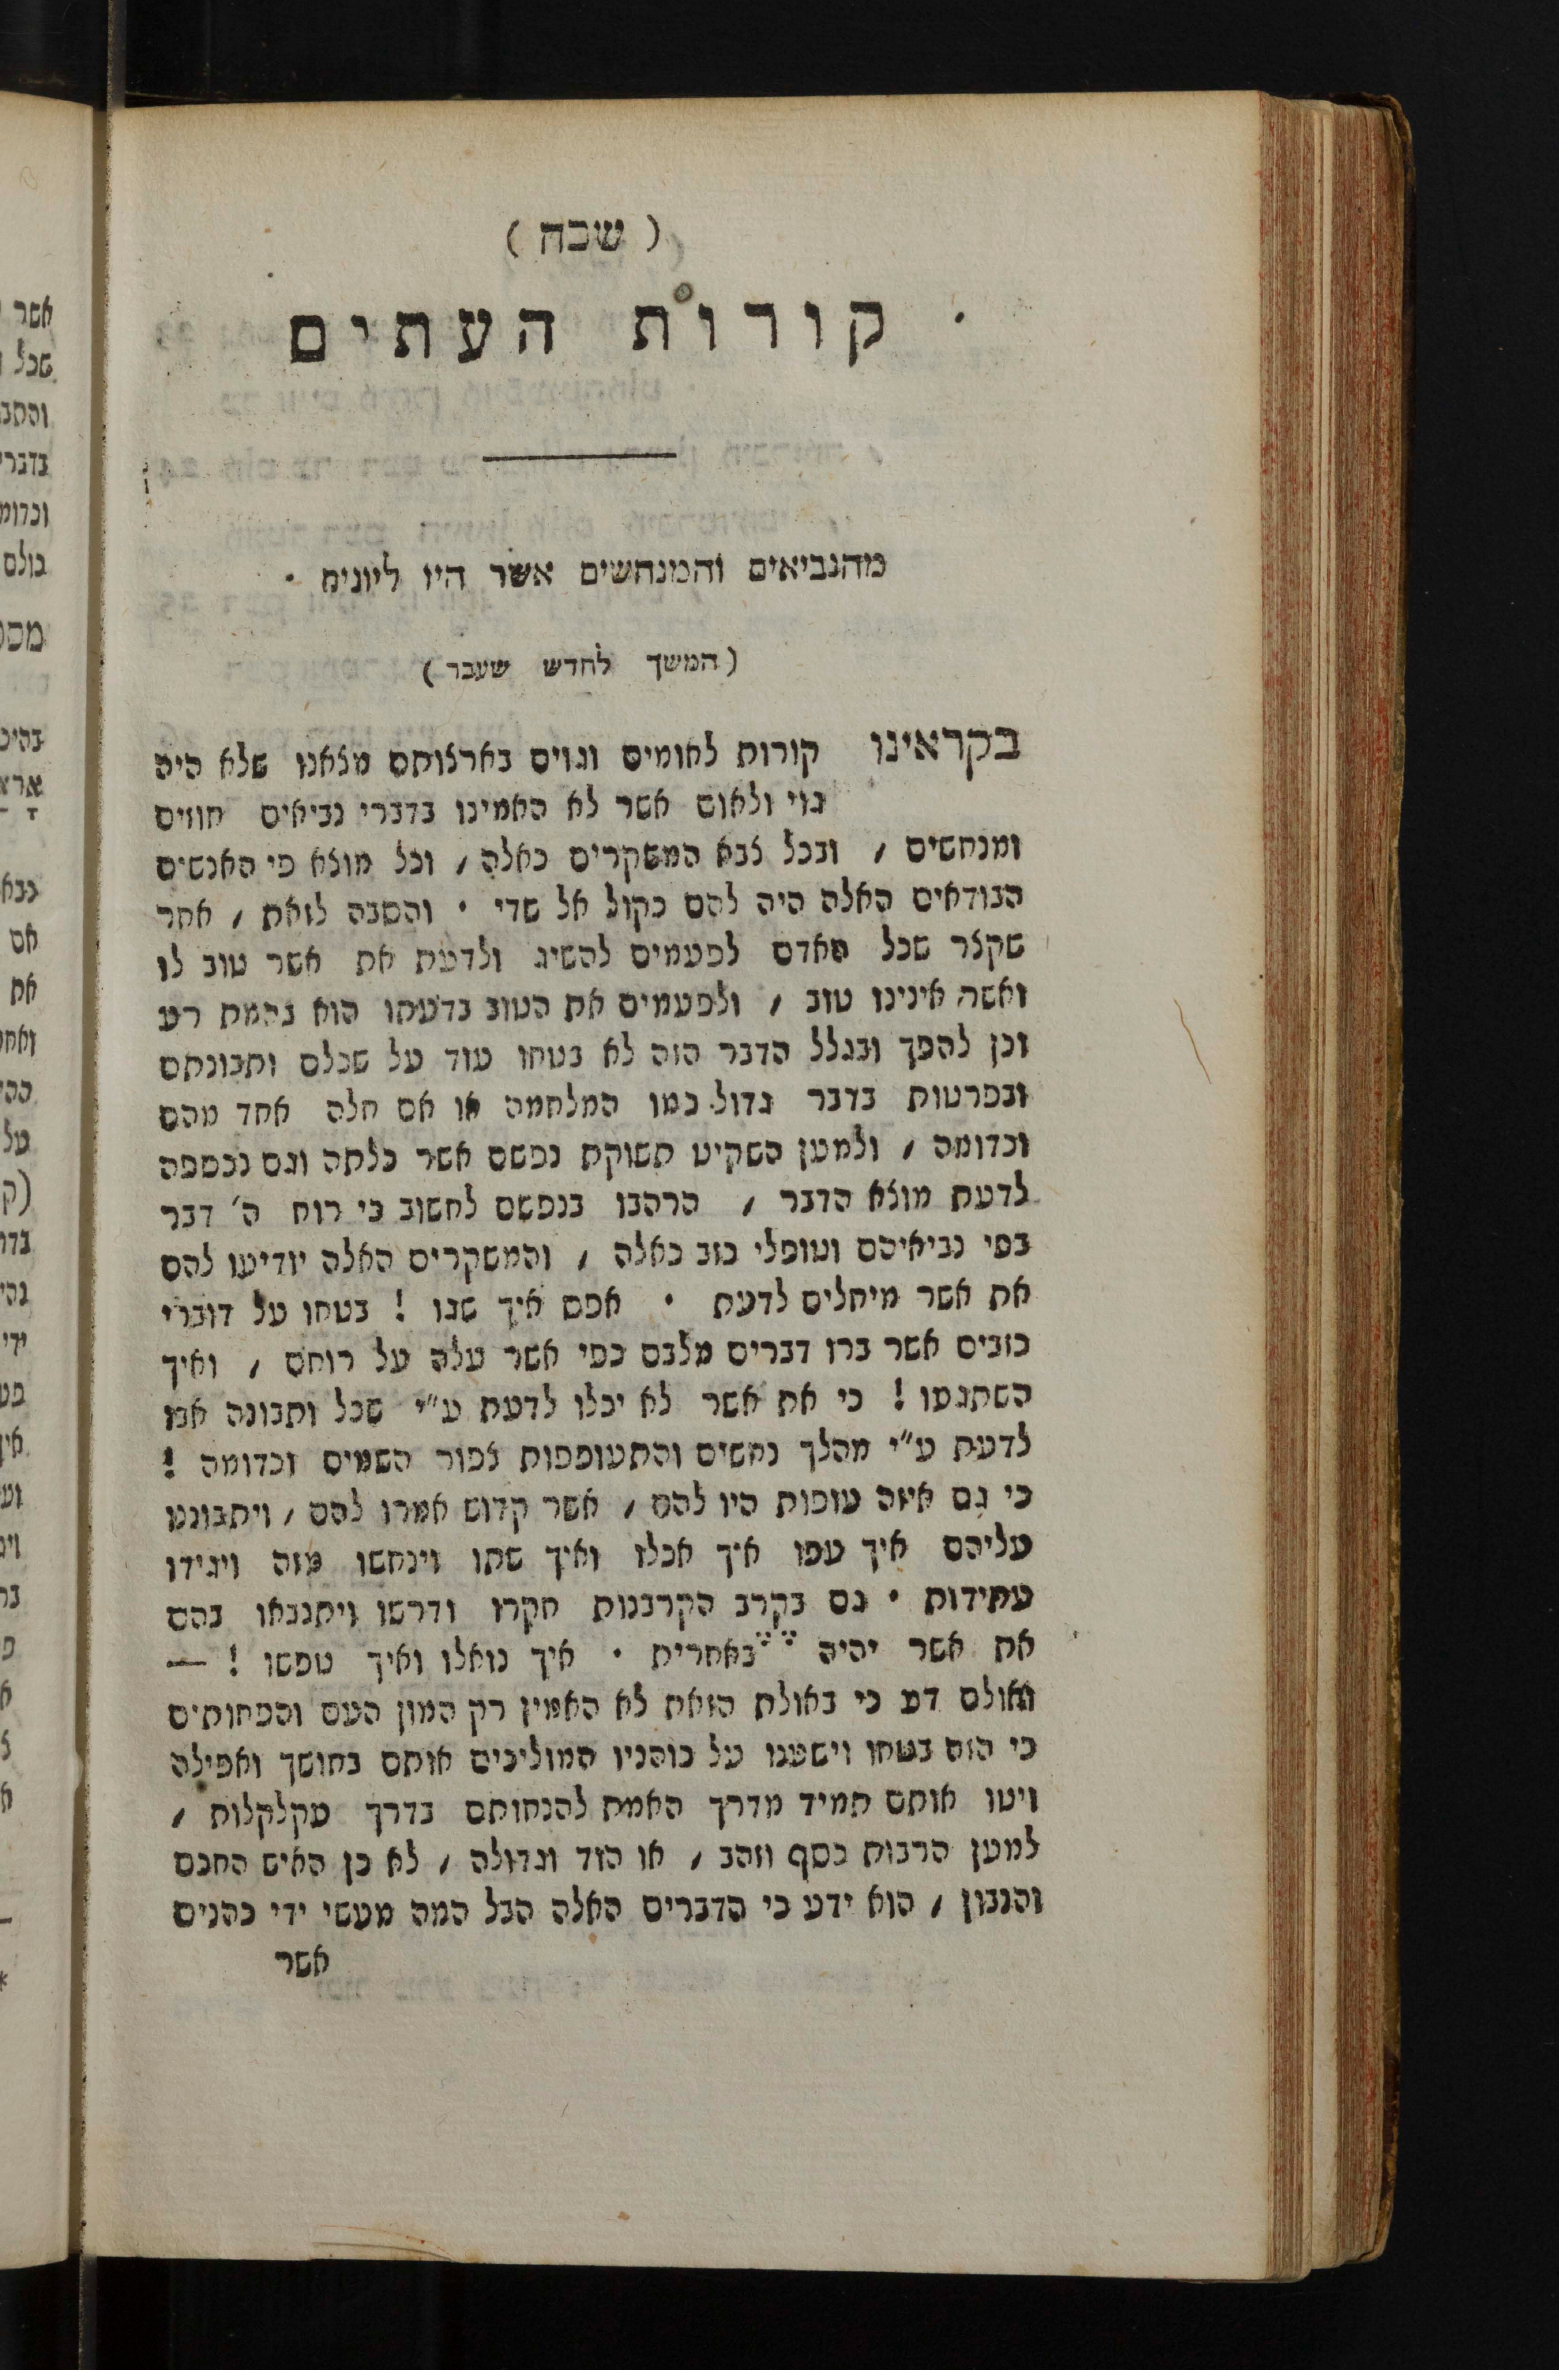 ( שכה )
קורות העתים
מהנביאים והמנחשים אשר היו ליונים ·
(המשך לחדש שעבר)
בקראינו קורות לאומים וגוים בארצותם מצאנו שלא היה
גוי ולאום אשר לא האמינו בדברי נביאים חוזים
ומנחשים , ובכל צבא המשקרים כאלה , וכל מוצא פי האנשים
הבודאים האלה היה להם כקול אל שדי · והסבה לזאת , אחר
שקצר שכל האדם לפעמים להשיג ולדעת את אשר טוב לו
ואשר איננו טוב , ולפעמים את הטוב בדעתו הוא באמת רע
וכן להפך ובגלל הדבר הזה לא בטחו עוד על שכלם ותבונתם
ובפרטות בדבר גדול כמו המלחמה או אם חלה אחד מהם
וכדומה , ולמען השקיט תשוקת נפשם אשר כלתה וגם נכספה
לדעת מוצא הדבר , הרהבו בנפשם לחשוב כי רוח ה' דבר
בפי נביאיהם וטופלי כזב כאלה , והמשקרים האלה יודיעו להם
את אשר מיחלים לדעת · אפס איך שגו ! בטחו על דוברי
כזבים אשר ברו דברים מלבם כפי אשר עלה על רוחם , ואיך
השתגעו ! כי את אשר לא יכלו לדעת ע"י שכל ותבונה אבו
לדעת ע"י מהלך נחשים והתעופפות צפור השמים וכדומה !
כי גם איזה עופות היו להם , אשר קדוש אמרו להם , ויתבוננו
עליהם איך עפו איך אכלו ואיך שתו וינחשו מזה ויגידו
עתידות · גם בקרב הקרבנות חקרו ודרשו ויתנבאו בהם
את אשר יהיה באחרית · איך נואלו ואיך טפשו ! —
ואולם דע כי באולת הזאת לא האמין רק המון העם והפחותים
כי הזה בטחו וישענו על כוהניו המוליכים אותם בחושך ואפילה
ויטו אותם תמיד מדרך האמת להנחותם בדרך עקלקלות ,
למען הרבות כסף וזהב , או הוד וגדולה , לא כן האיש החכם
והנבון , הוא ידע כי הדברים האלה הבל המה מעשי ידי כהנים
אשר